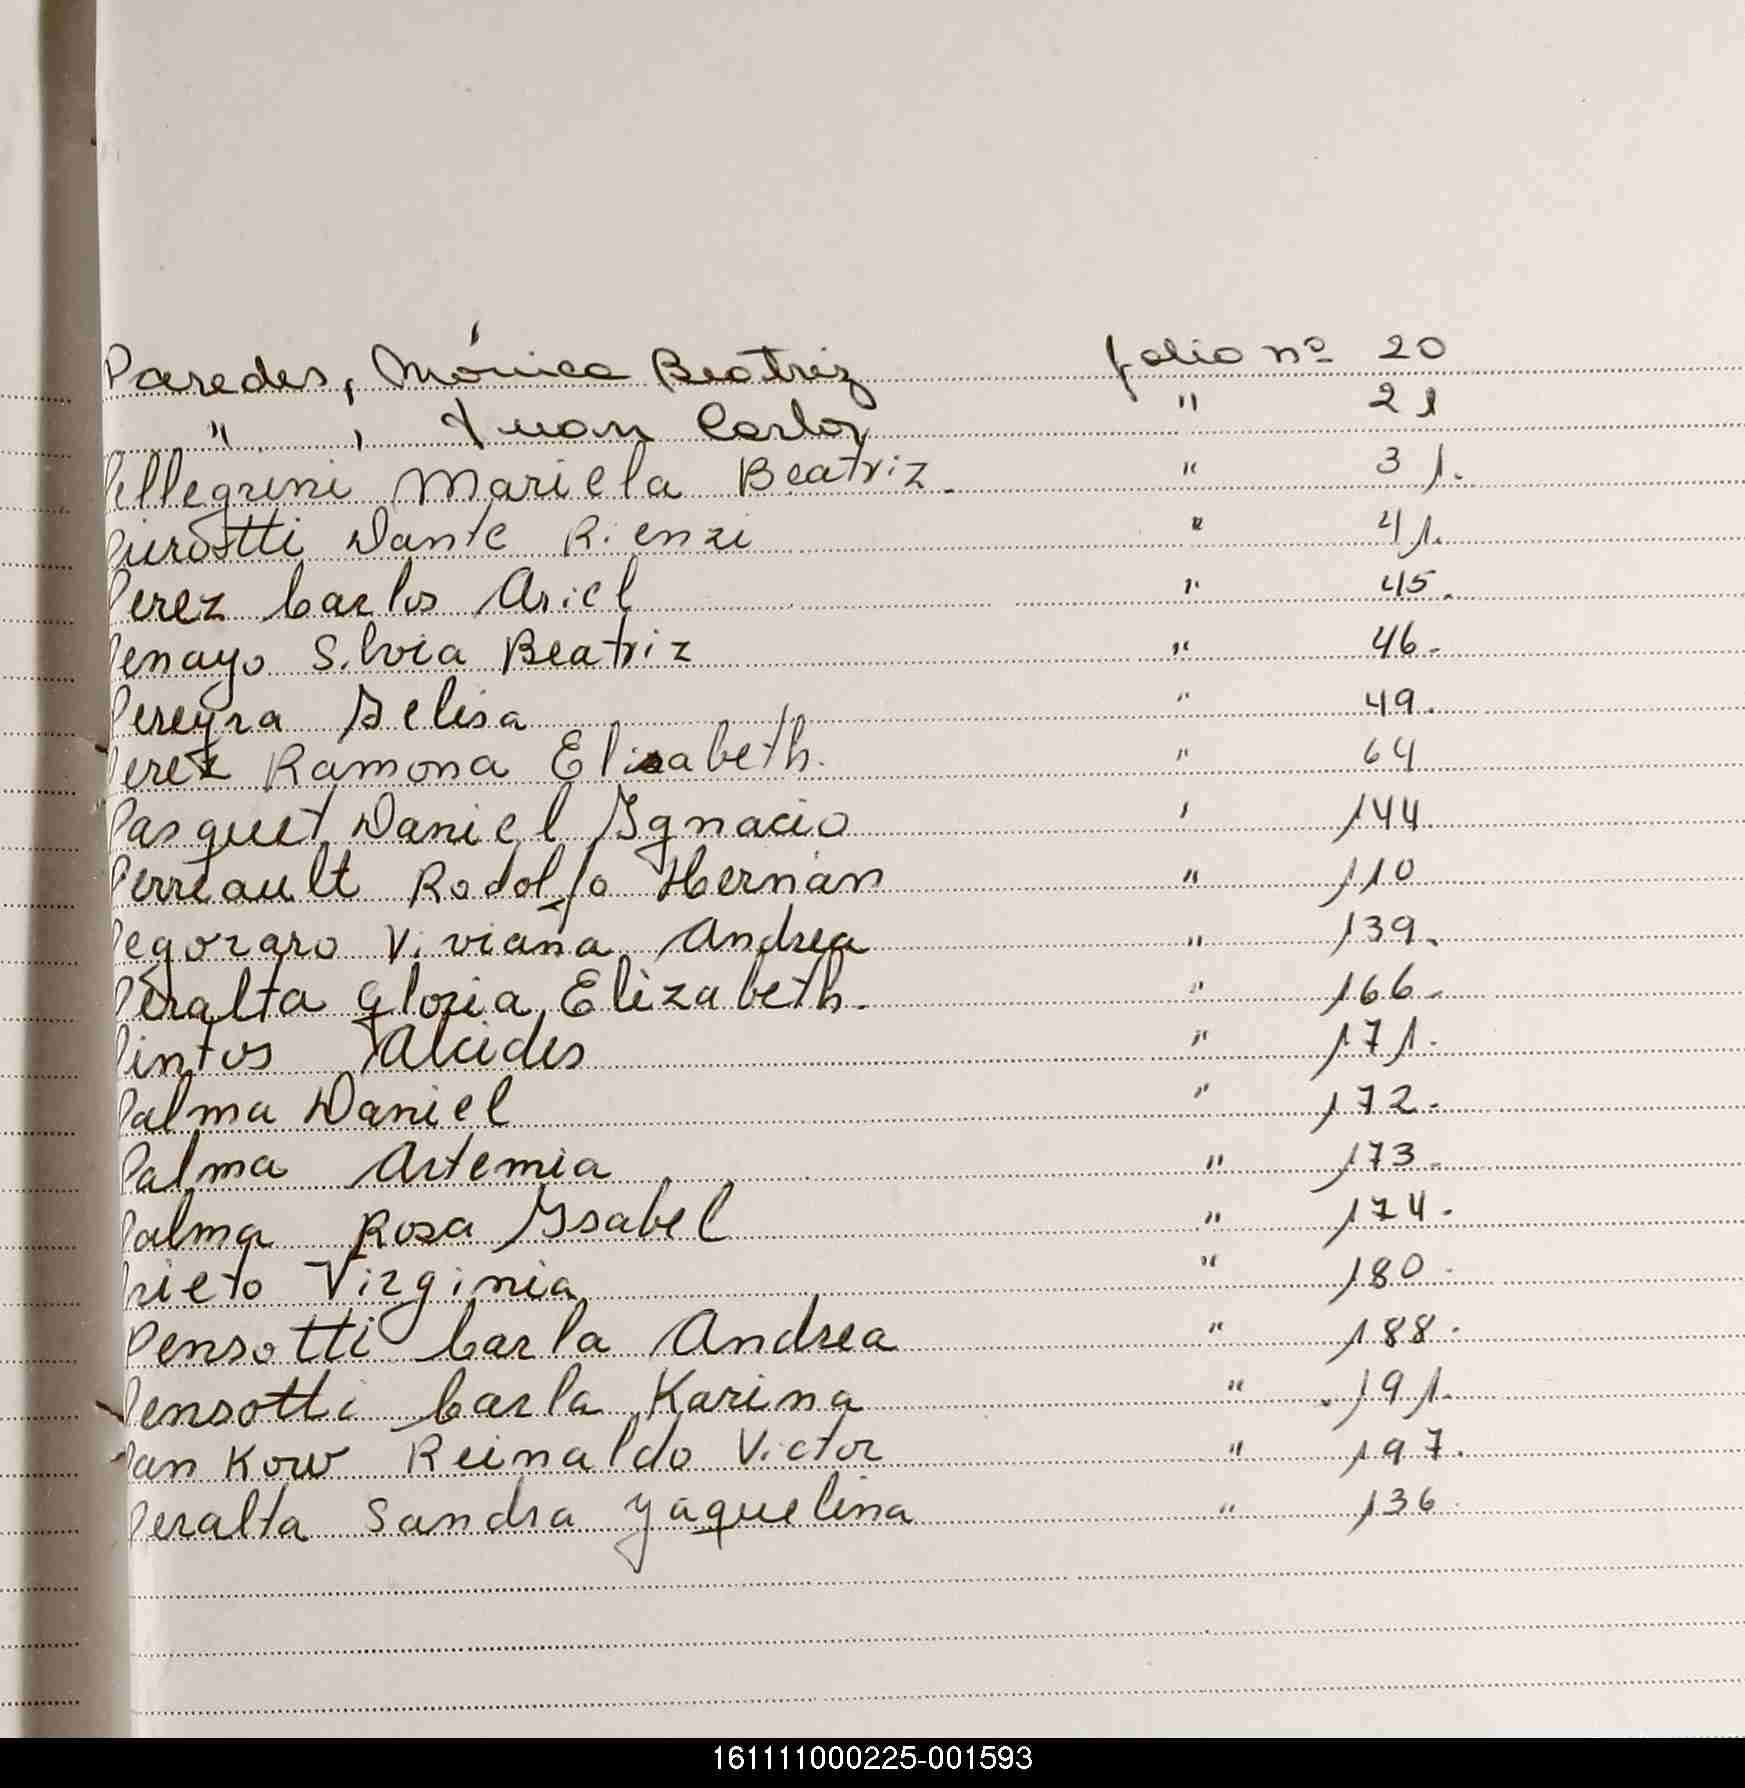 Paredes, Mónica Beatriz folio nº 20
" , Juan Carlos " 21
Pellegrini Mariela Beatriz. " 31.
Pierotti Dante Rienzi " 41.
Perez Carlos Ariel " 45.
Penayo Silvia Beatriz " 46.
Pereyra Delisa " 49.
Perez Ramona Elisabeth. " 64
Pasquet Daniel Ygnacio ' 144
Perreault Rodolfo Hernán " 110
Pegoraro Viviana Andrea " 139.
Peralta Gloria Elizabeth. " 166.
Pintos Alcides " 171.
Palma Daniel " 172.
Palma Artemia " 173.
Palma Rosa Ysabel " 174.
Prieto Virginia " 180.
Pensotti Carla Andrea " 188.
Pensotti Carla Karina " 191.
Pan Kow Reinaldo Victor " 197.
Peralta Sandra Yaquelina " 136
161111000225-001593